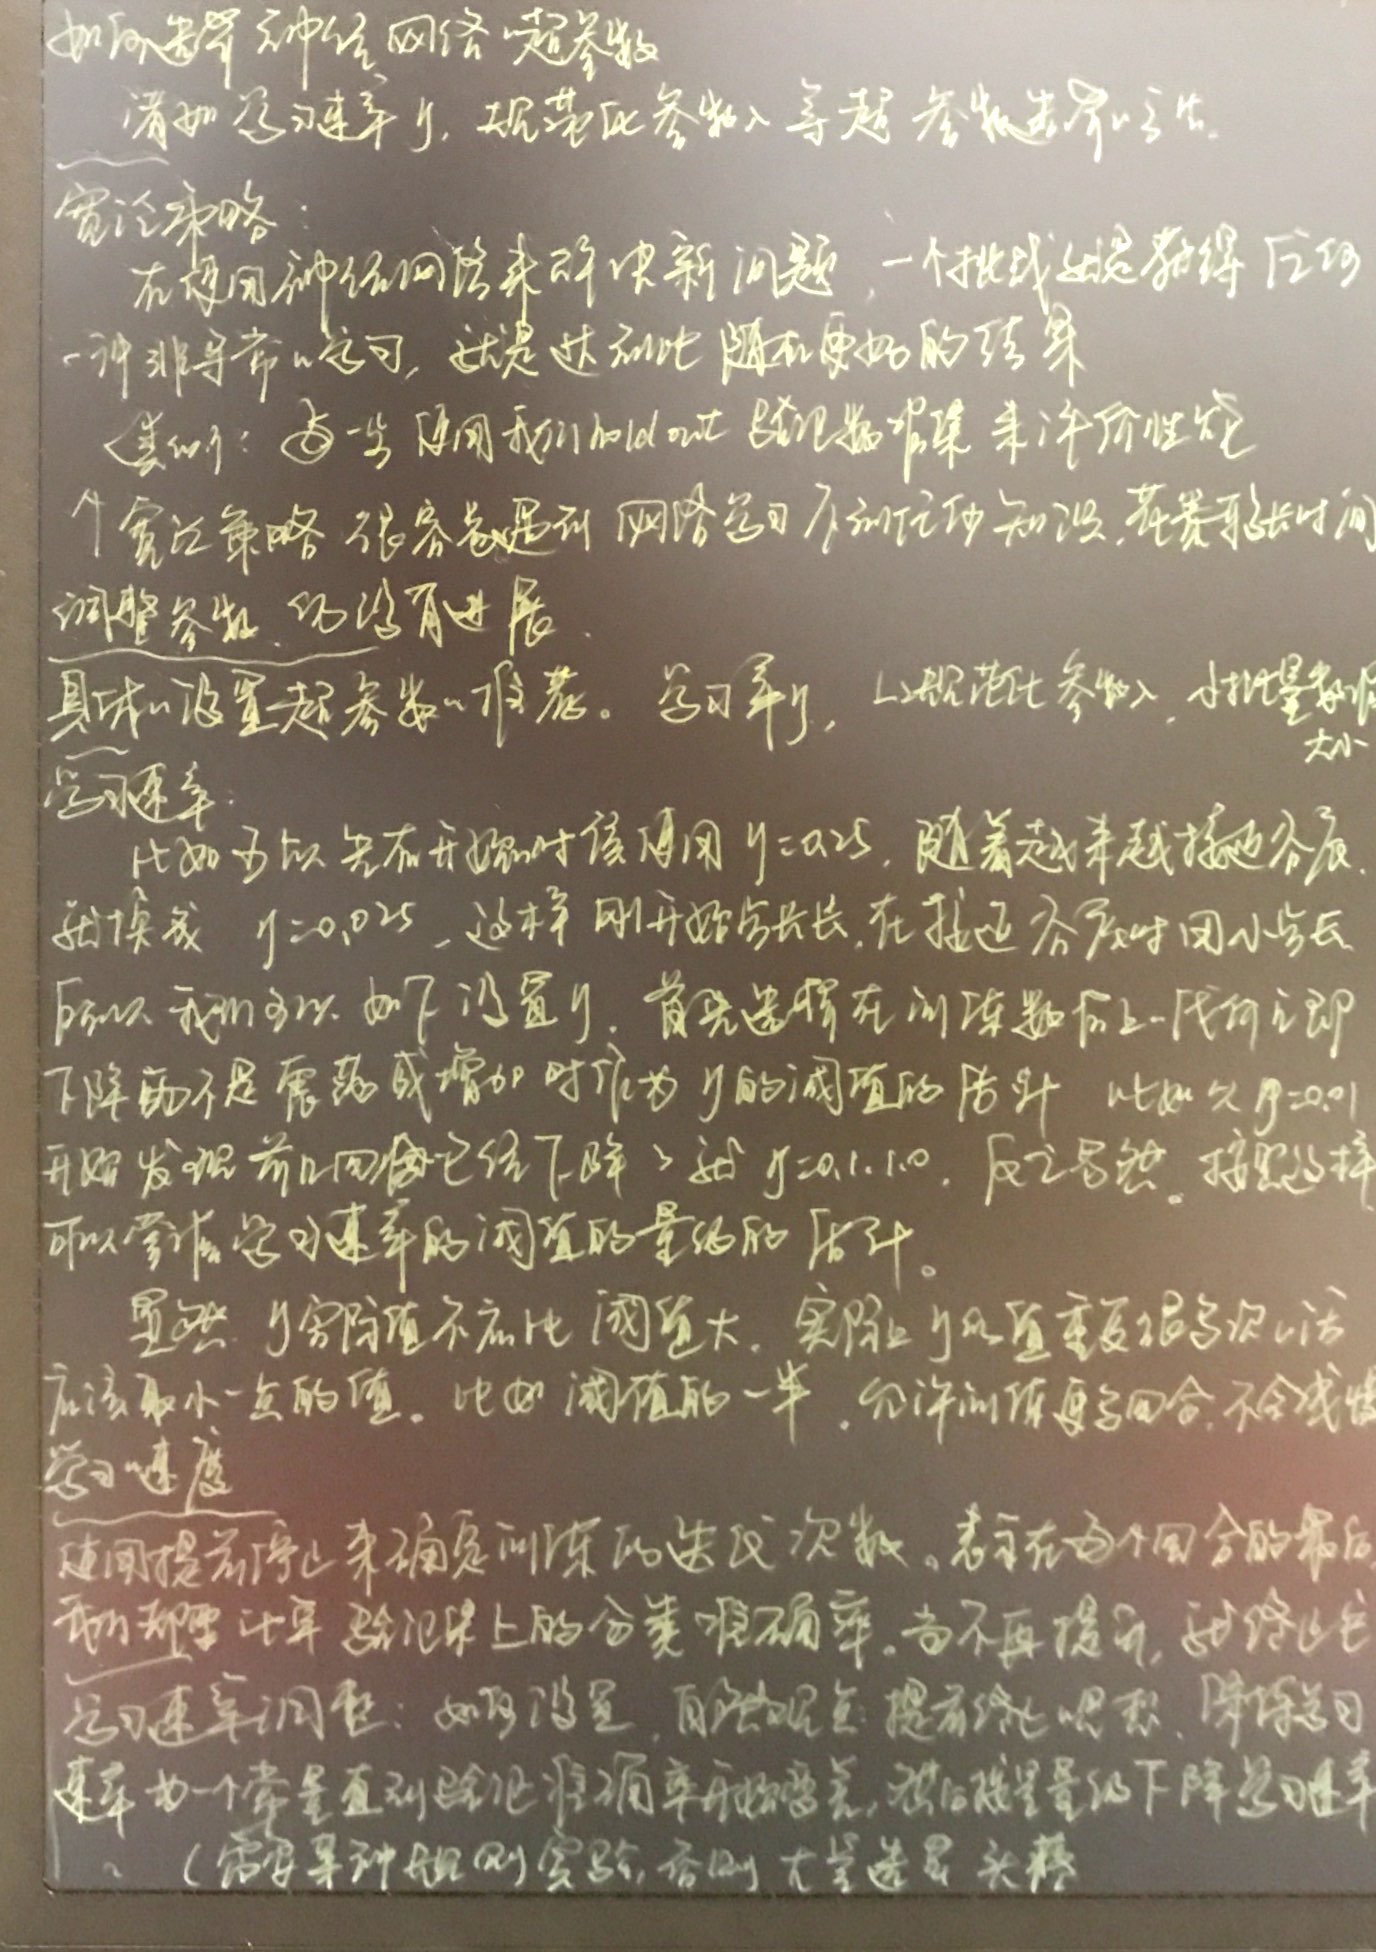 如何选择神经网络超参数
诸如学习速率η,规范化参数λ等超参数选择的方法.
宽泛策略:
在使用神经网络来解决新问题,一个挑战就是获得任何
一种非寻常的学习,就是达到比随机更好的结果
类似:每一步使用我们hold out验证数据集来评价性能
个宽泛策略很容易遇到网络学习不到任何知识,花费较长时间
调整参数,仍没有进展.
具体的设置超参数的推荐。学习率η,L2规范化参数λ,小批量数据
大小
学习速率:
比如可以先在开始时候使用η=0.25,随着越来越接近谷底.
就换成η=0.025,这样刚开始步长长,在接近谷底时用小步长
所以我们可以如下设置η.首先选择在训练数据上的代价立即
下降而不是震荡或增加时作为η的阈值的估计 比如以η=0.01
开始发现前几回合它经下降,就η=0.1,1.0.反之亦然。按照这样
可以掌握学习速率的阈值的量级的估计。
显然η实际值不应比阈值大.实际上η的值重复很多次的话
应该取小一点的值。比如阈值的一半.允许训练更多回合,不会减慢
学习的速度
使用提前停止来确定训练的迭代次数。表示在每个回合的最后,
我们都要计算验证集上的分类准确率。当不再提升,就终止它
学习速率调整:如何设置,自然观点提前终止思想,保持学习
速率为一个常量直到验证准确率开始变差,然后按照量级下降学习速率
(需要某种规则实验,否则大量选择头疼